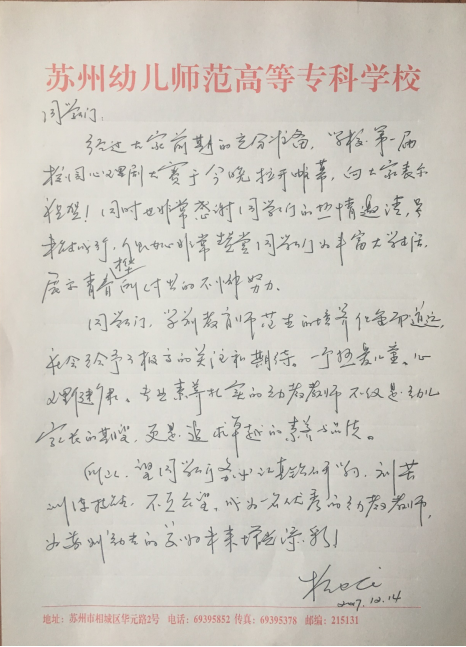 苏州幼儿师范高等专科学校
同学们:
经过大家前期的充分准备,学校第一届
校园心理剧大赛于今晚拉开帷幕,向大家表示
祝贺!同时也非常感谢同学们的热情邀请,虽
未能成行,但内心非常赞赏同学们为丰富大学生活,
展示青春所付出的不懈努力。
同学们,学前教育师范生的培养任重而道远,
社会给予了极高的关注和期待。一个热爱儿童、心
理健康、专业素养扎实的幼教教师不仅是幼儿
家长的期望,更是追求卓越的素养与品质。
因此,望同学们
训练技能,不负众望,成为一名优秀的幼教教师,
为苏州幼教的美好未来增光添彩!
2017.12.14
地址:苏州市相城区华元路2号 电话:69395852 传真:69395378 邮编:215131